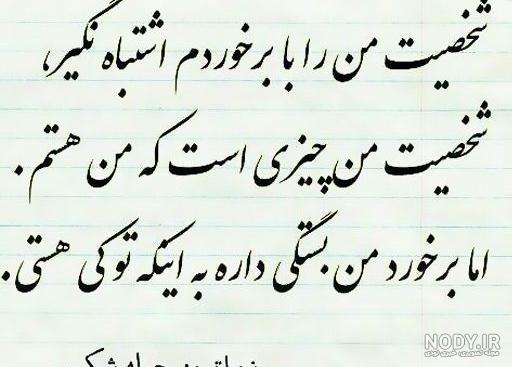 شخصیت من را با برخوردم اشتباه نگیر،
شخصیت من چیزی است که من هستم.
اما برخورد من بستگی داره به اینکه تو کی هستی.
NODY.IR